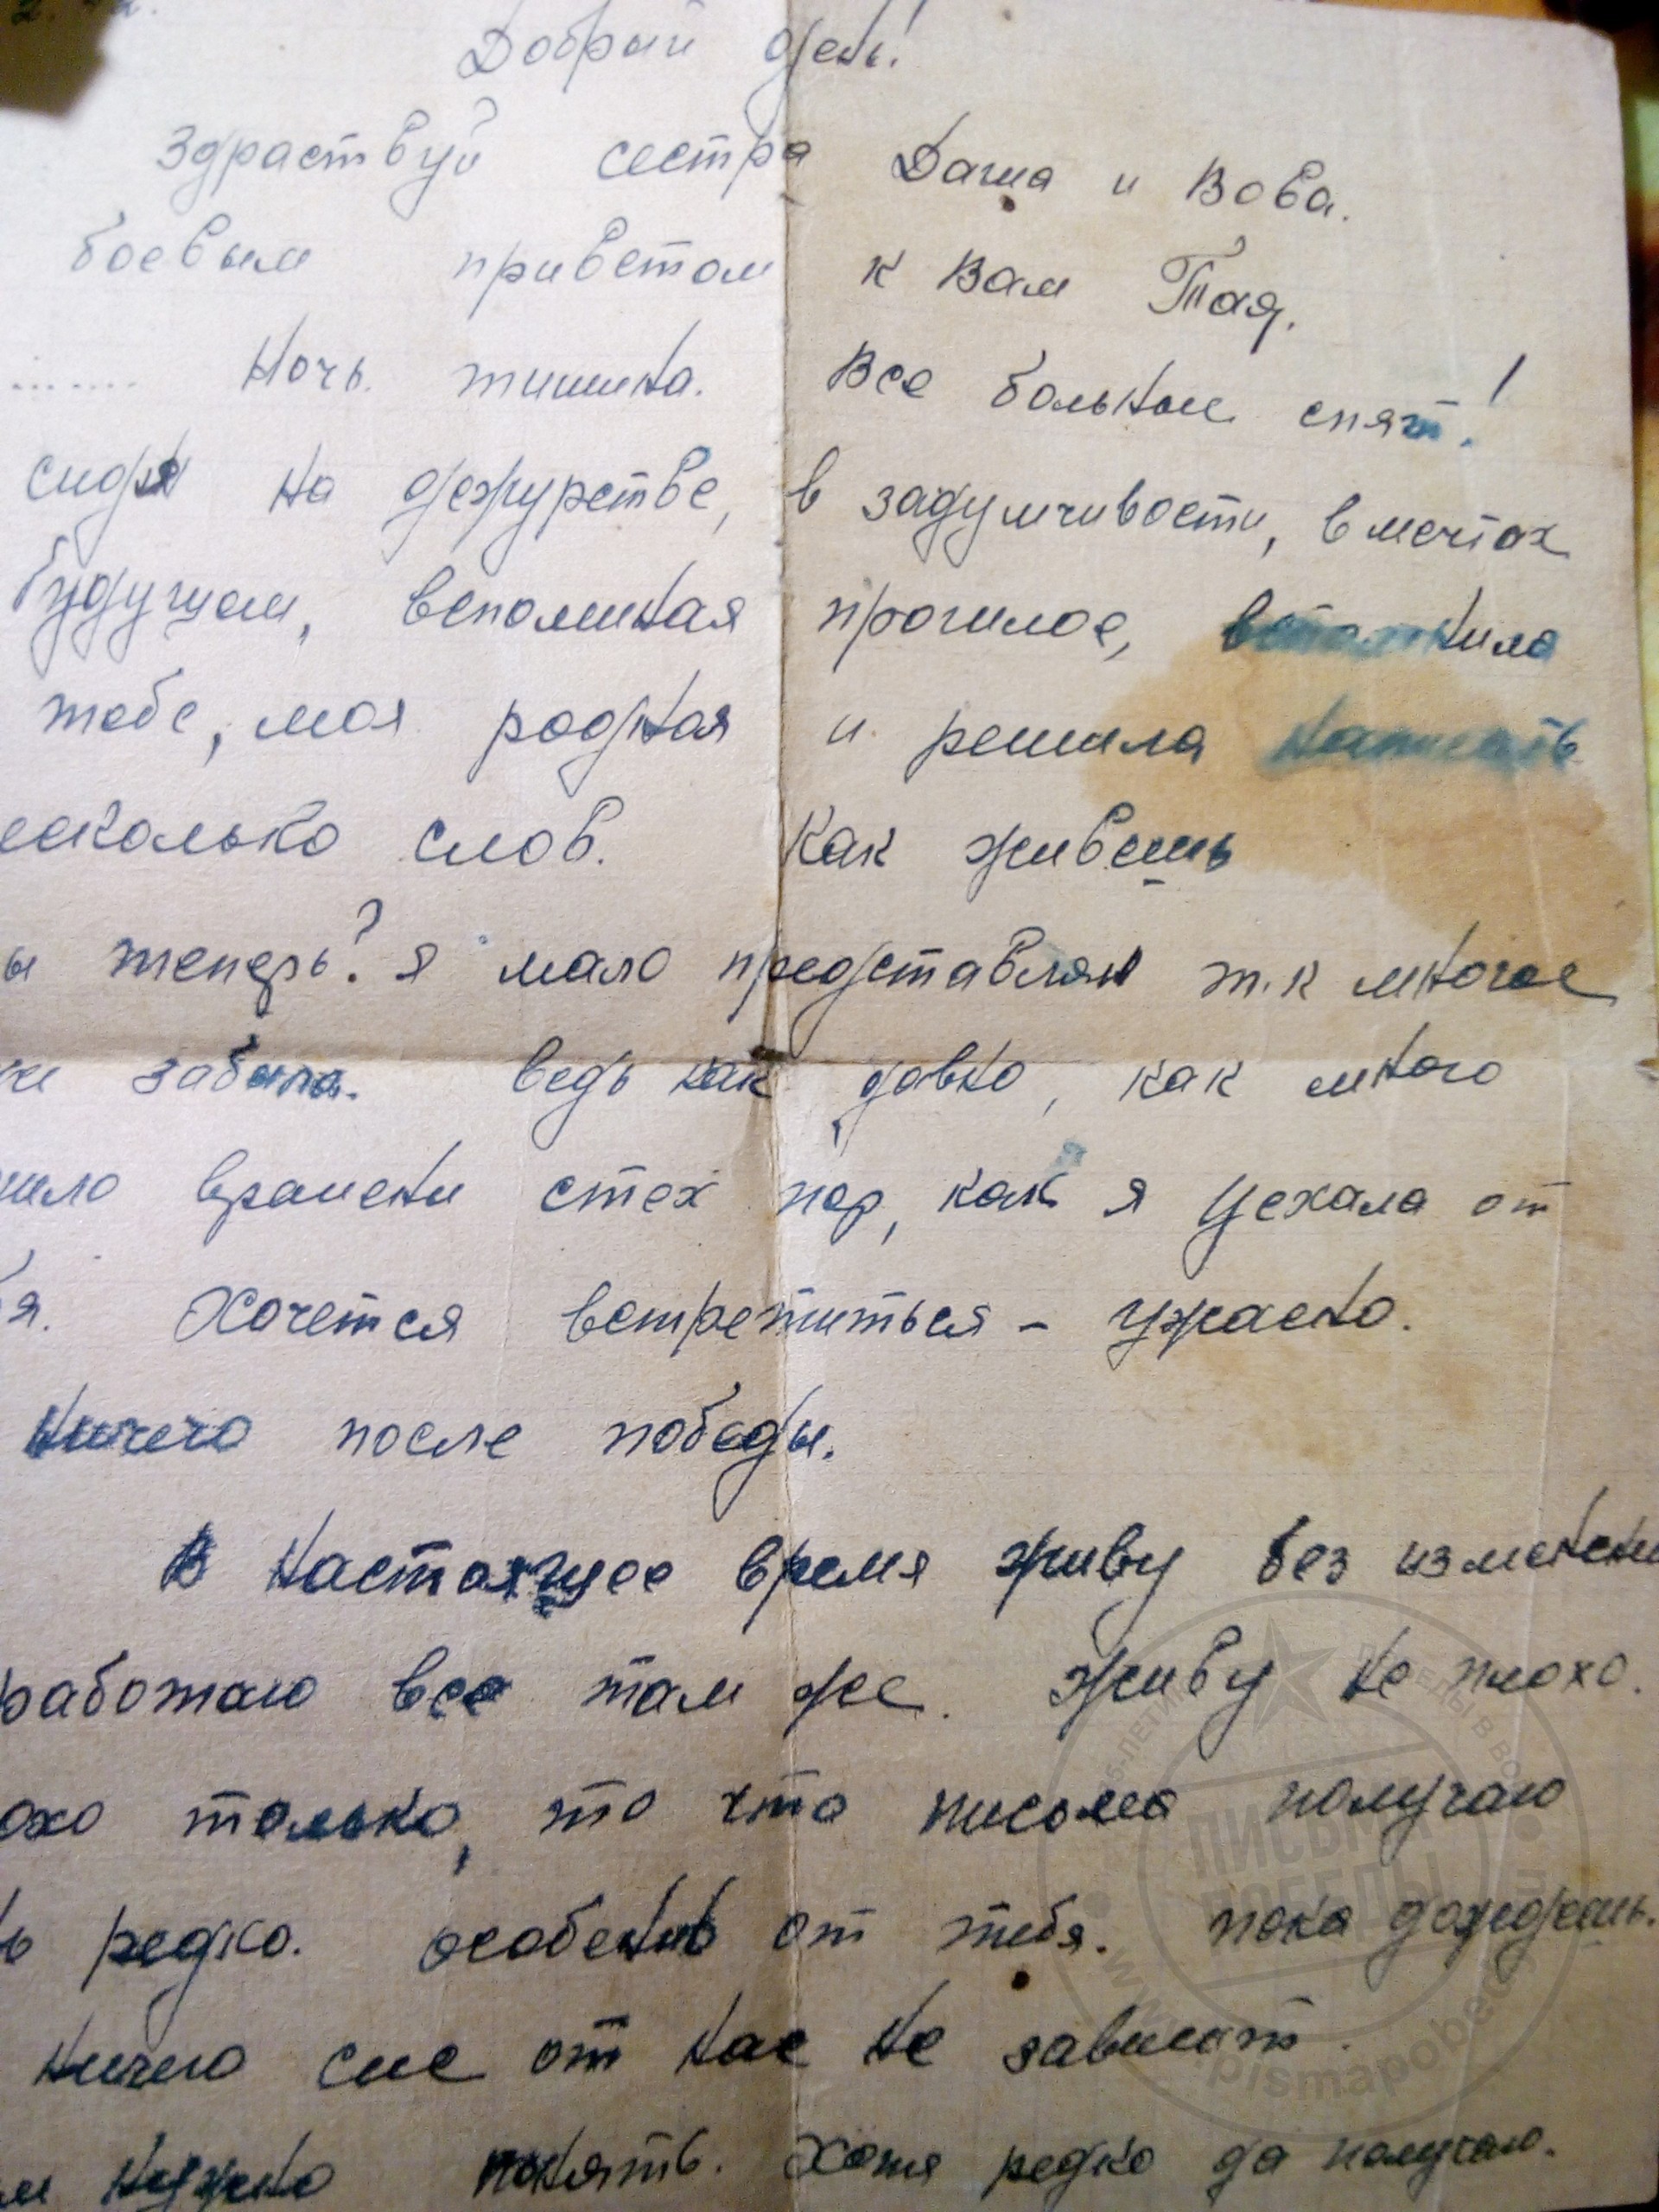 Добрый день!
Здраствуй сестра Даша и Вова.
боевым приветом к Вам Тая.
....... Ночь. тишина. Все больные спят!
сидя на дежурстве, в задумчивости, в мечтах
будущем, вспоминая прошлое, вспомнила
тебе, моя родная и решила написать
есколько слов. Как живешь
ы теперь? я мало представляю т.к многое
же забыла. Ведь как давно, как много
шло времени стех пор, как я уехала от
бя. Хочется встретиться - ужасно.
Ничего после победы.
В настоящее время живу без изменени
работаю все там же. Живу не плохо.
охо только, то что письма получаю
ь редко. особенно от тебя. пока дождешь.
Ничего сие от нас не зависит.
м нужно понять. Хотя редко да получаю.
ПИСЬМА
ПОБЕДЫ